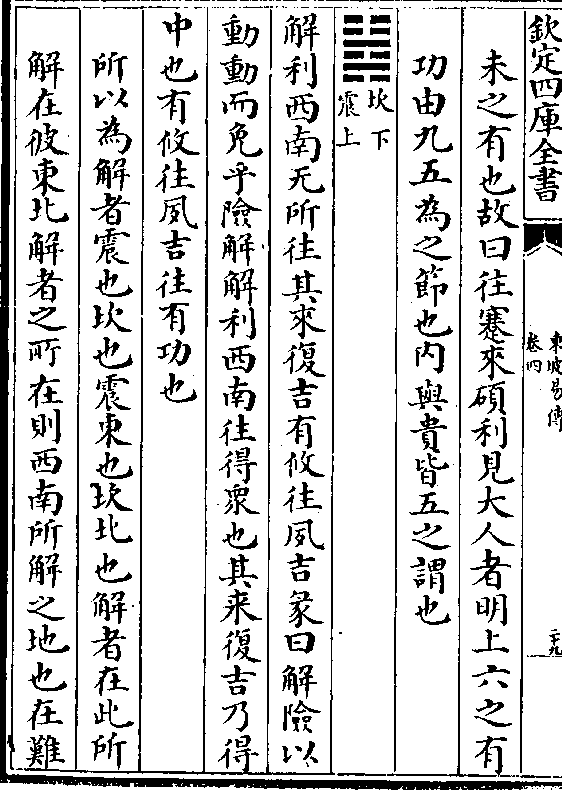 欽定四庫全書
東坡易傳
卷四
二十九
未之有也故曰往蹇來碩利見大人者明上六之有
功由九五為之節也内與貴皆五之謂也
坎下
震上
解利西南无所往其來復吉有攸往夙吉彖曰解險以
動動而免乎險解解利西南往得衆也其来復吉乃得
中也有攸往夙吉往有功也
所以為解者震也坎也震東也坎北也解者在此所
解在彼東北解者之所在則西南所解之地也在難